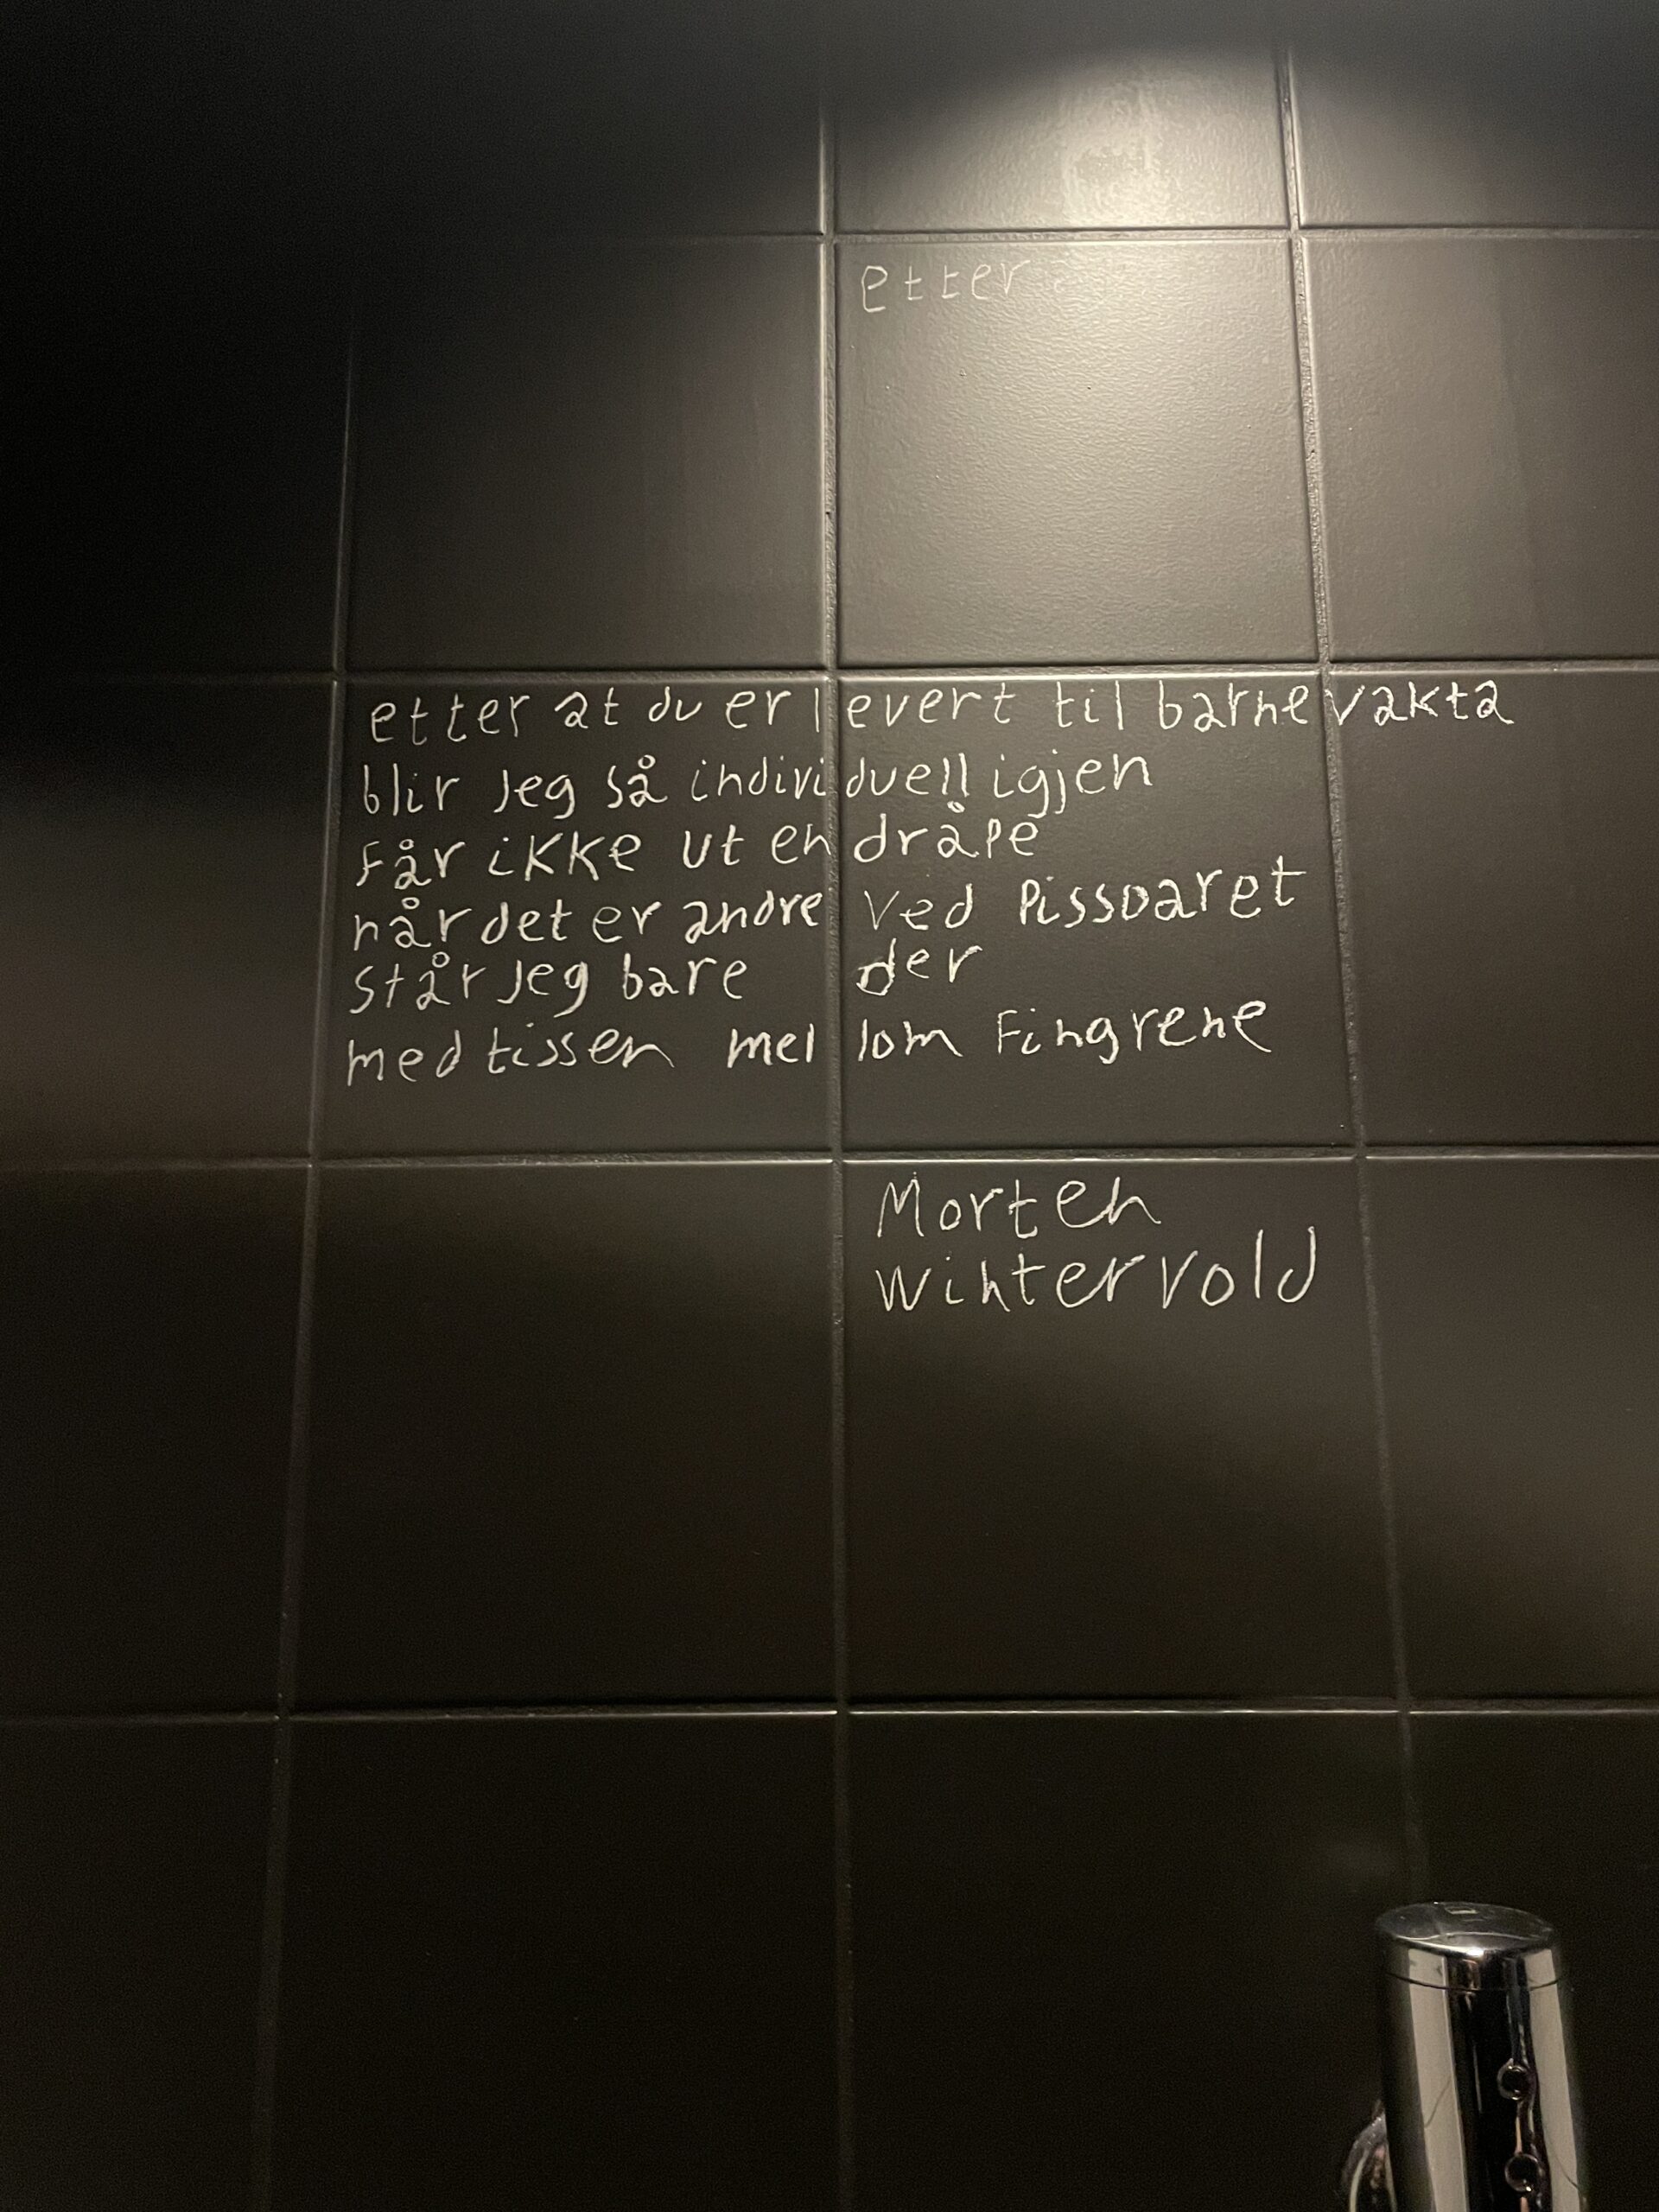 etter
etter at du er levert til barnevakta
blir jeg så individuell igjen
får ikke ut en dråpe
når det er andre ved Pissoaret
står jeg bare der
med tissen mellom Fingrene
Morten
Wintervold